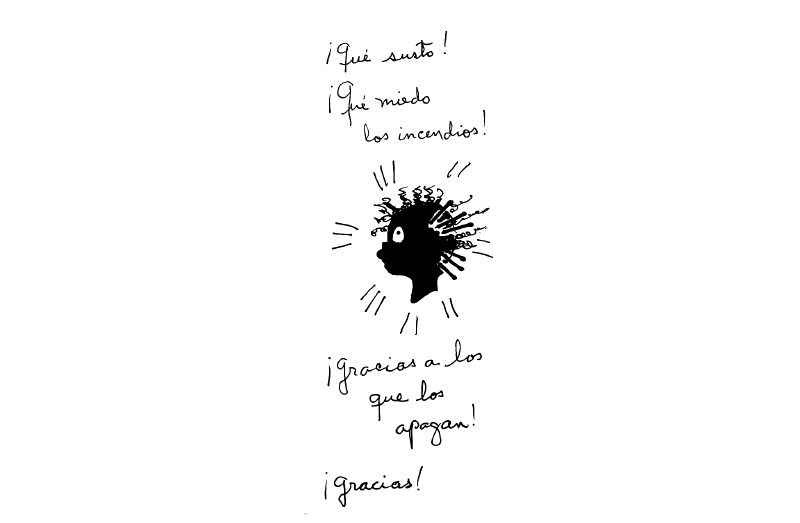 ¡Qué susto!
¡Qué miedo
los incendios!
¡gracias a los
que los
apagan!
¡gracias!